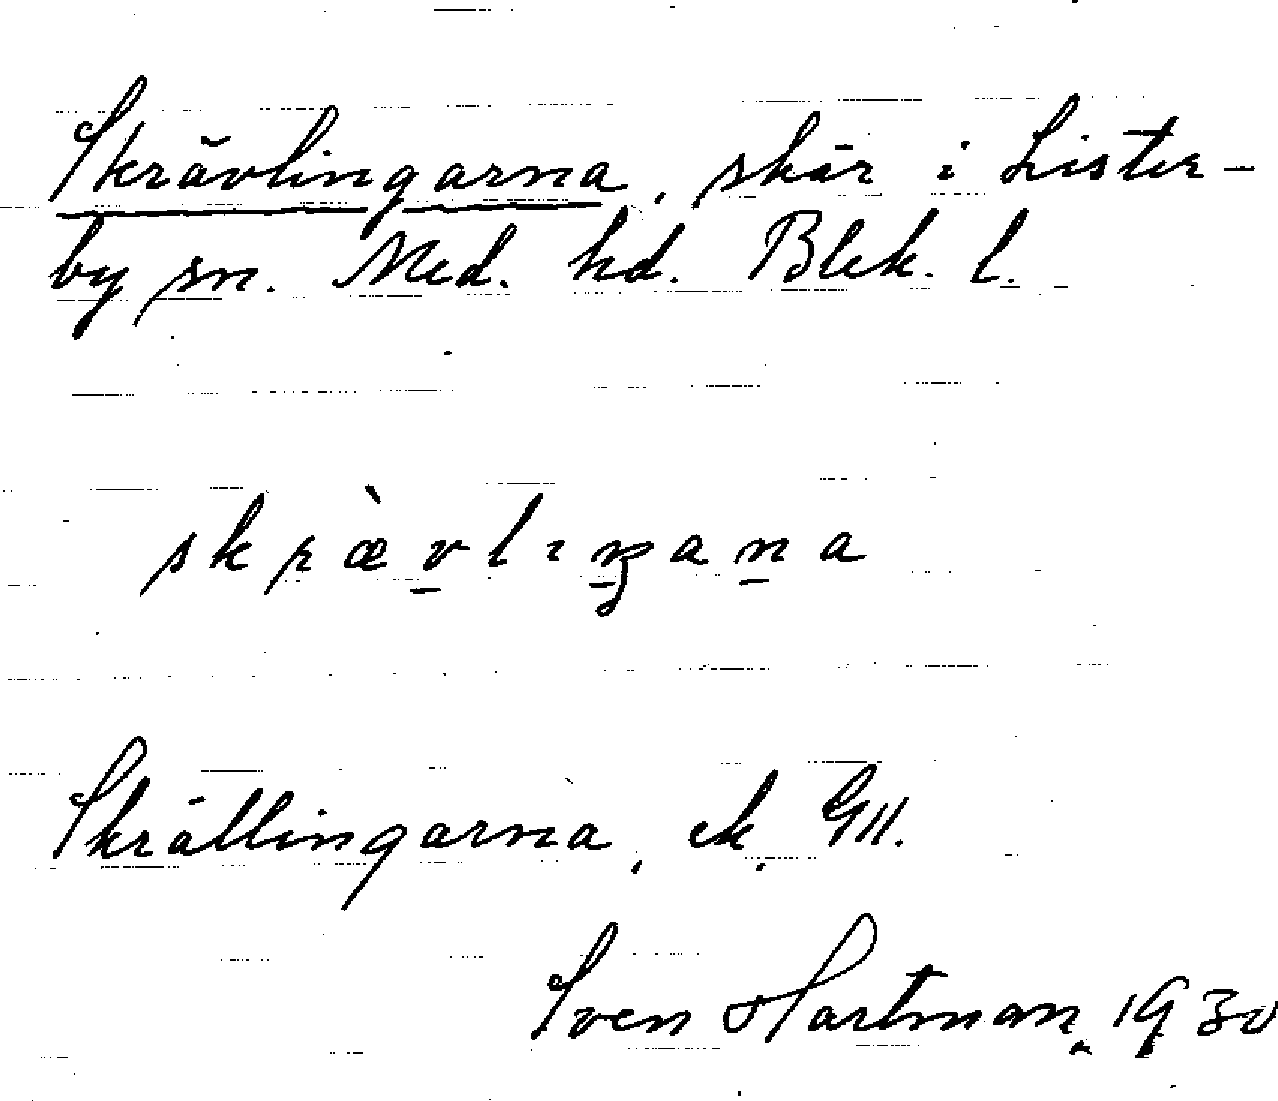 Skrävlingarna, skär i Lister-
by sn. Med. hd. Blek. l.
skræ̀vlıŋana
Skrällingarna, ek. G11.
Sven Hartman, 1930